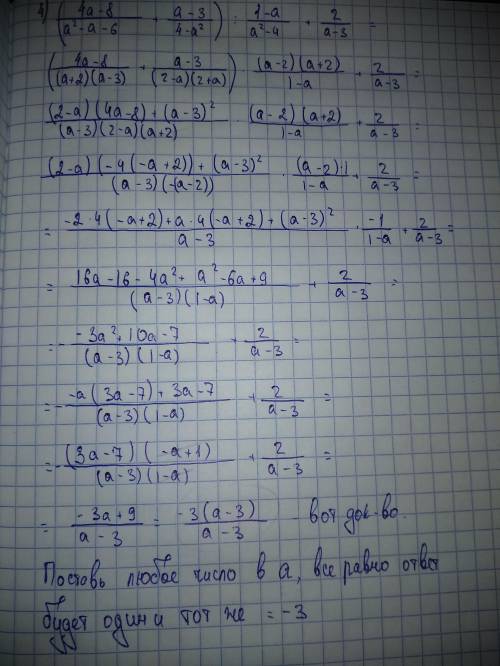 1) ((4a-8)/(a²-a-6) + (a-3)/(4-a²)) : (1-a)/(a²-4) + 2/(a-3) =
((4a-8)/((a+2)(a-3)) + (a-3)/((2-a)(2+a))) · ((a-2)(a+2))/(1-a) + 2/(a-3) =
((2-a)(4a-8)+(a-3)²)/((a-3)(2-a)(a+2)) · ((a-2)(a+2))/(1-a) + 2/(a-3) =
((2-a)(-4(-a+2))+(a-3)²)/((a-3)(-(a-2))) · ((a-2)·1)/(1-a) + 2/(a-3) =
= (-2·4(-a+2)+a·4(-a+2)+(a-3)²)/(a-3) · (-1)/(1-a) + 2/(a-3) =
= (16a-16-4a²+a²-6a+9)/((a-3)(1-a)) + 2/(a-3) =
= - (-3a²+10a-7)/((a-3)(1-a)) + 2/(a-3) =
= - (-a(3a-7)+3a-7)/((a-3)(1-a)) + 2/(a-3) =
= - ((3a-7)(-a+1))/((a-3)(1-a)) + 2/(a-3) =
= (-3a+9)/(a-3) = (-3(a-3))/(a-3) вот док-во.
Поставь любое число в a, все равно ответ
будет один и тот же = -3